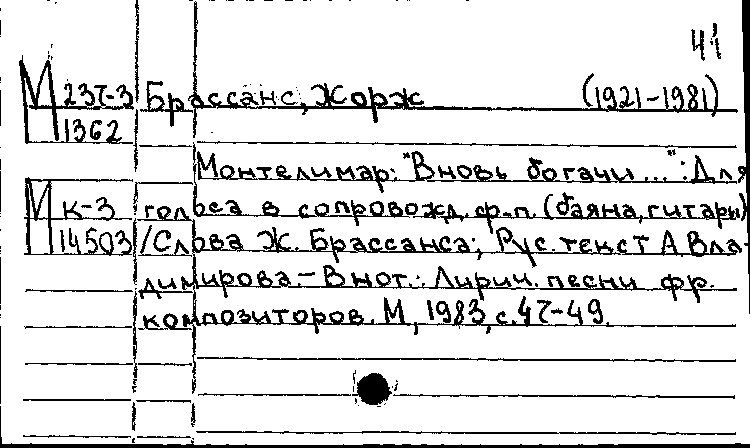 41
М 237-3 Брассанс, Жорж (1921-1981)
1362
Монтелимар: "Вновь богачи...": Для
М к-3 голоса в сопровожд. ф-п. (баяна, гитары)
14503 /Слова Ж. Брассанса; Рус. текст А. Вла-
димирова.- В нот.: Лирич. песни фр.
композиторов. М, 1983, с. 47-49.